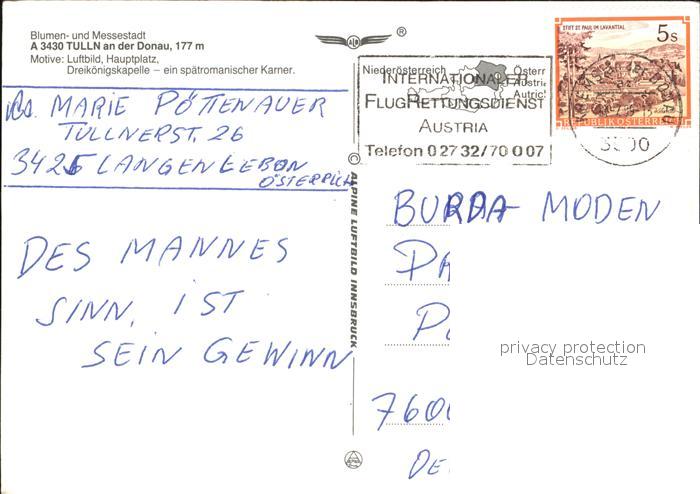 Blumen- und Messestadt
A 3430 TULLN an der Donau, 177 m
Motive: Luftbild, Hauptplatz,
Dreikönigskapelle – ein spätromanischer Karner.
®
STIFT ST. PAUL IM LAVANTTAL
5s
REPUBLIK ÖSTERREICH
Niederösterreich
INTERNATIONALER
FLUGRETTUNGSDIENST
AUSTRIA
Telefon 0 27 32/70 0 07
MARIE PÖTTENAUER
TULLNERST. 26
3425 LANGENLEBARN
ÖSTERREICH
© ALPINE LUFTBILD INNSBRUCK
DES MANNES
SINN, IST
SEIN GEWINN
BURDA MODEN
PA
P
760
DE
privacy protection
Datenschutz